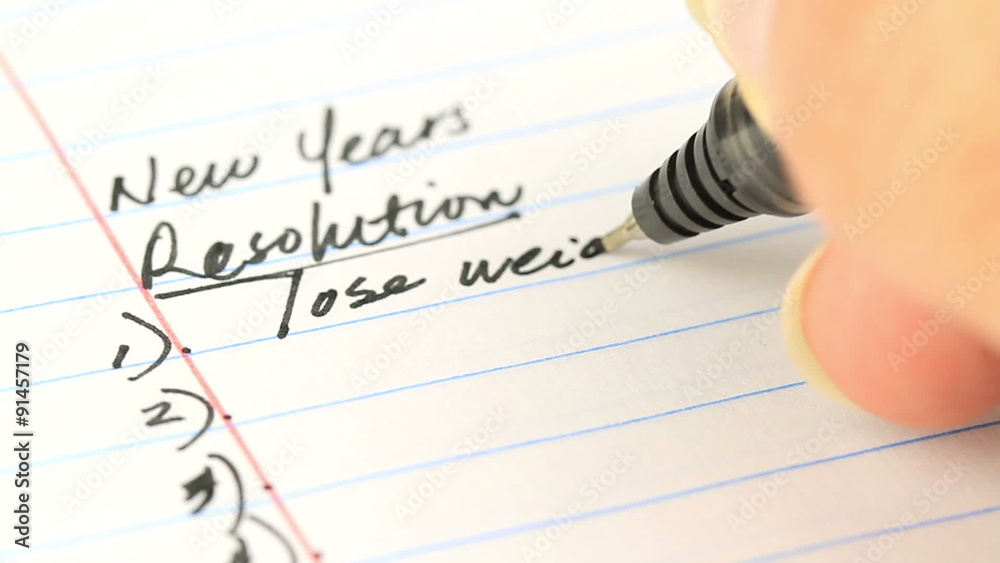 New Years
Resolution
1). lose weig
2)
3)
Adobe Stock | #91457179